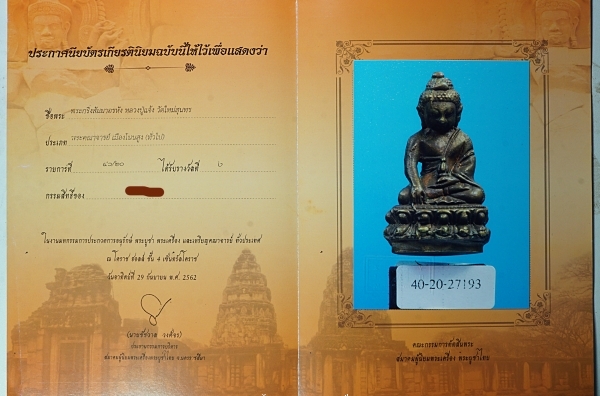 ประกาศนียบัตรเกียรตินิยมฉบับนี้ให้ไว้เพื่อแสดงว่า
ชื่อพระ พระกริ่ง หลวงปู่แจ้ง วัดใหม่สุนทร
ประเภท พระคณาจารย์ เมืองโนนสูง (ทั่วไป)
รายการที่ ๔๐/๒๐ ได้รับรางวัลที่ ๖
กรรมสิทธิ์ของ
ในงานมหกรรมการประกวดการอนุรักษ์ พระบูชา พระเครื่อง และเหรียญคณาจารย์ ทั่วประเทศ
ณ โคราช ฮอลล์ ชั้น 4 เซ็นทรัลโคราช
วันอาทิตย์ที่ 29 กันยายน พ.ศ. 2562
ประธานกรรมการบริหาร
สมาคมผู้นิยมพระเครื่องพระบูชาไทย
40-20-27193
คณะกรรมการตัดสินพระ
สมาคมผู้นิยมพระเครื่อง พระบูชาไทย